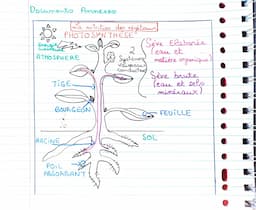 Documents Annexes
La nutrition des végétaux
PHOTOSYNTHESE
ATMOSPHERE
2
Systèmes
conducteurs
Sève Elaborée
(eau et
matière organique)
Sève brute
(eau et sels
minéraux)
TIGE
BOURGEON
FEUILLE
SOL
RACINE
POIL
ABSORBANT